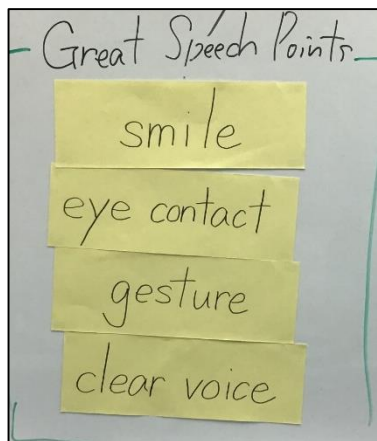 Great Speech Points
smile
eye contact
gesture
clear voice